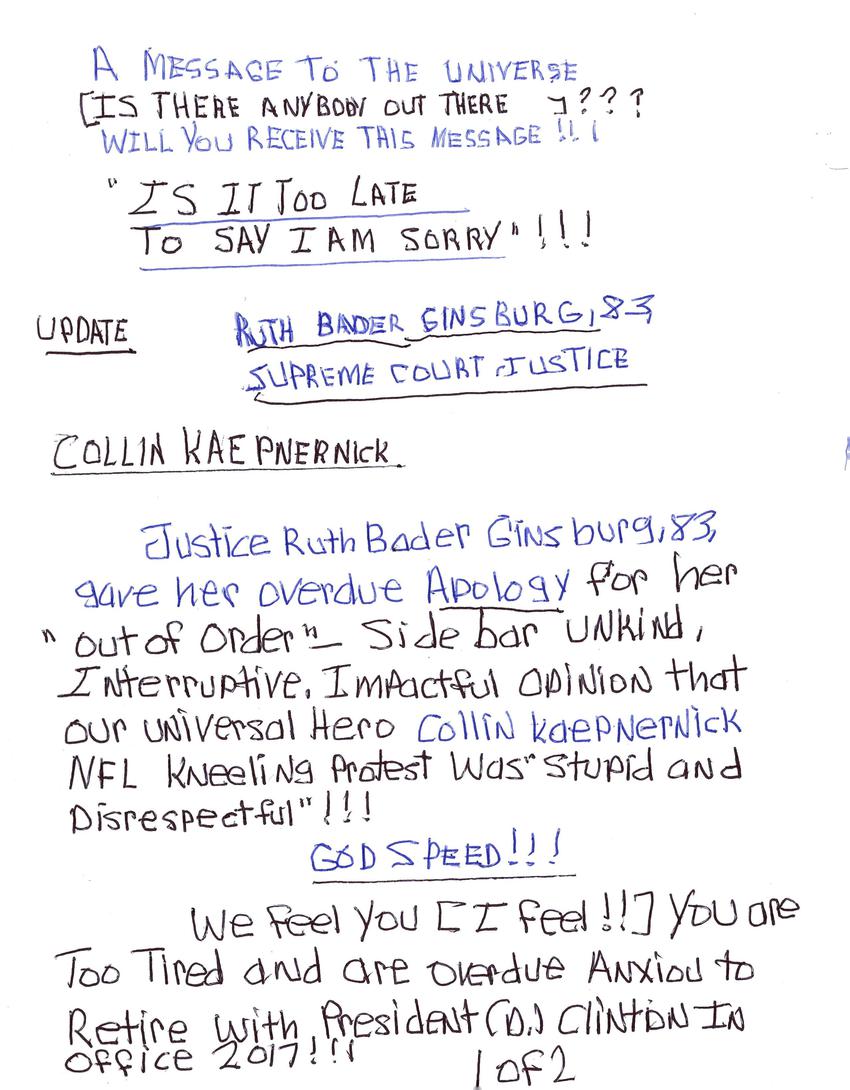 A MESSAGE TO THE UNIVERSE
[IS THERE ANYBODY OUT THERE ]???
WILL YOU RECEIVE THIS MESSAGE !!!
"IS IT TOO LATE
TO SAY I AM SORRY"!!!
UPDATE RUTH BADER GINSBURG, 83,
SUPREME COURT JUSTICE
COLLIN KAEPNERNICK
Justice Ruth Bader Ginsburg, 83,
gave her overdue Apology for her
"out of Order"- Side bar UNKind,
Interruptive, Impactful OPINION that
our universal Hero Collin Kaepnernick
NFL Kneeling Protest Was "Stupid and
Disrespectful"!!!
GOD SPEED!!!
We feel you [I feel!!] You are
Too Tired and are overdue Anxiou to
Retire with President (D.) Clinton In
office 2017!!!
1 of 2